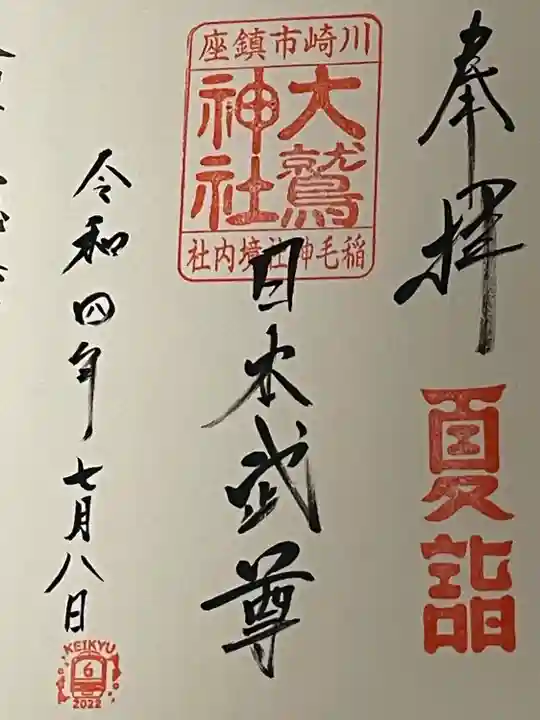 奉拝
夏詣
川崎市鎮座
大鷲
神社
稲毛神社境内社
日本武尊
令和四年七月八日
KEIKYU
6
2022